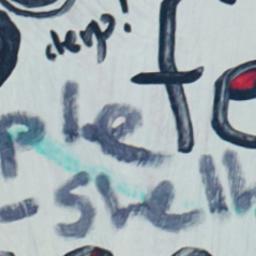 derp!
fe
ple
-shell